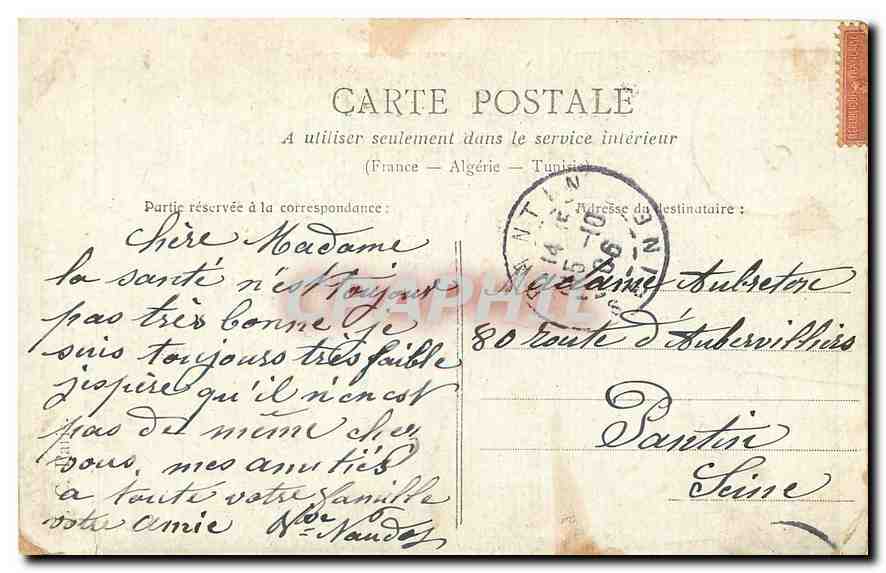 CARTE POSTALE
A utiliser seulement dans le service intérieur
(France — Algérie — Tunisie)
Partie réservée à la correspondance :
Adresse du destinataire :
Chère Madame
la santé n'est toujour
pas très bonne je
suis toujours très faible
j'espère qu'il n'en est
pas de même chez
vous, mes amitiés
a toute votre famille
votre amie Naudot
Madame Aubreton
80 route d'Aubervilliers
Pantin
Seine
PANTIN
SEINE
15-10
06
CHAPITRE